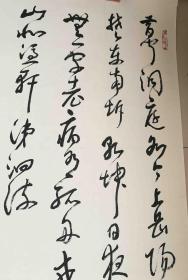 昔聞洞庭水今上岳陽
楚東南坼乾坤日夜
無一字老病有孤舟戎
山北憑軒涕泗流